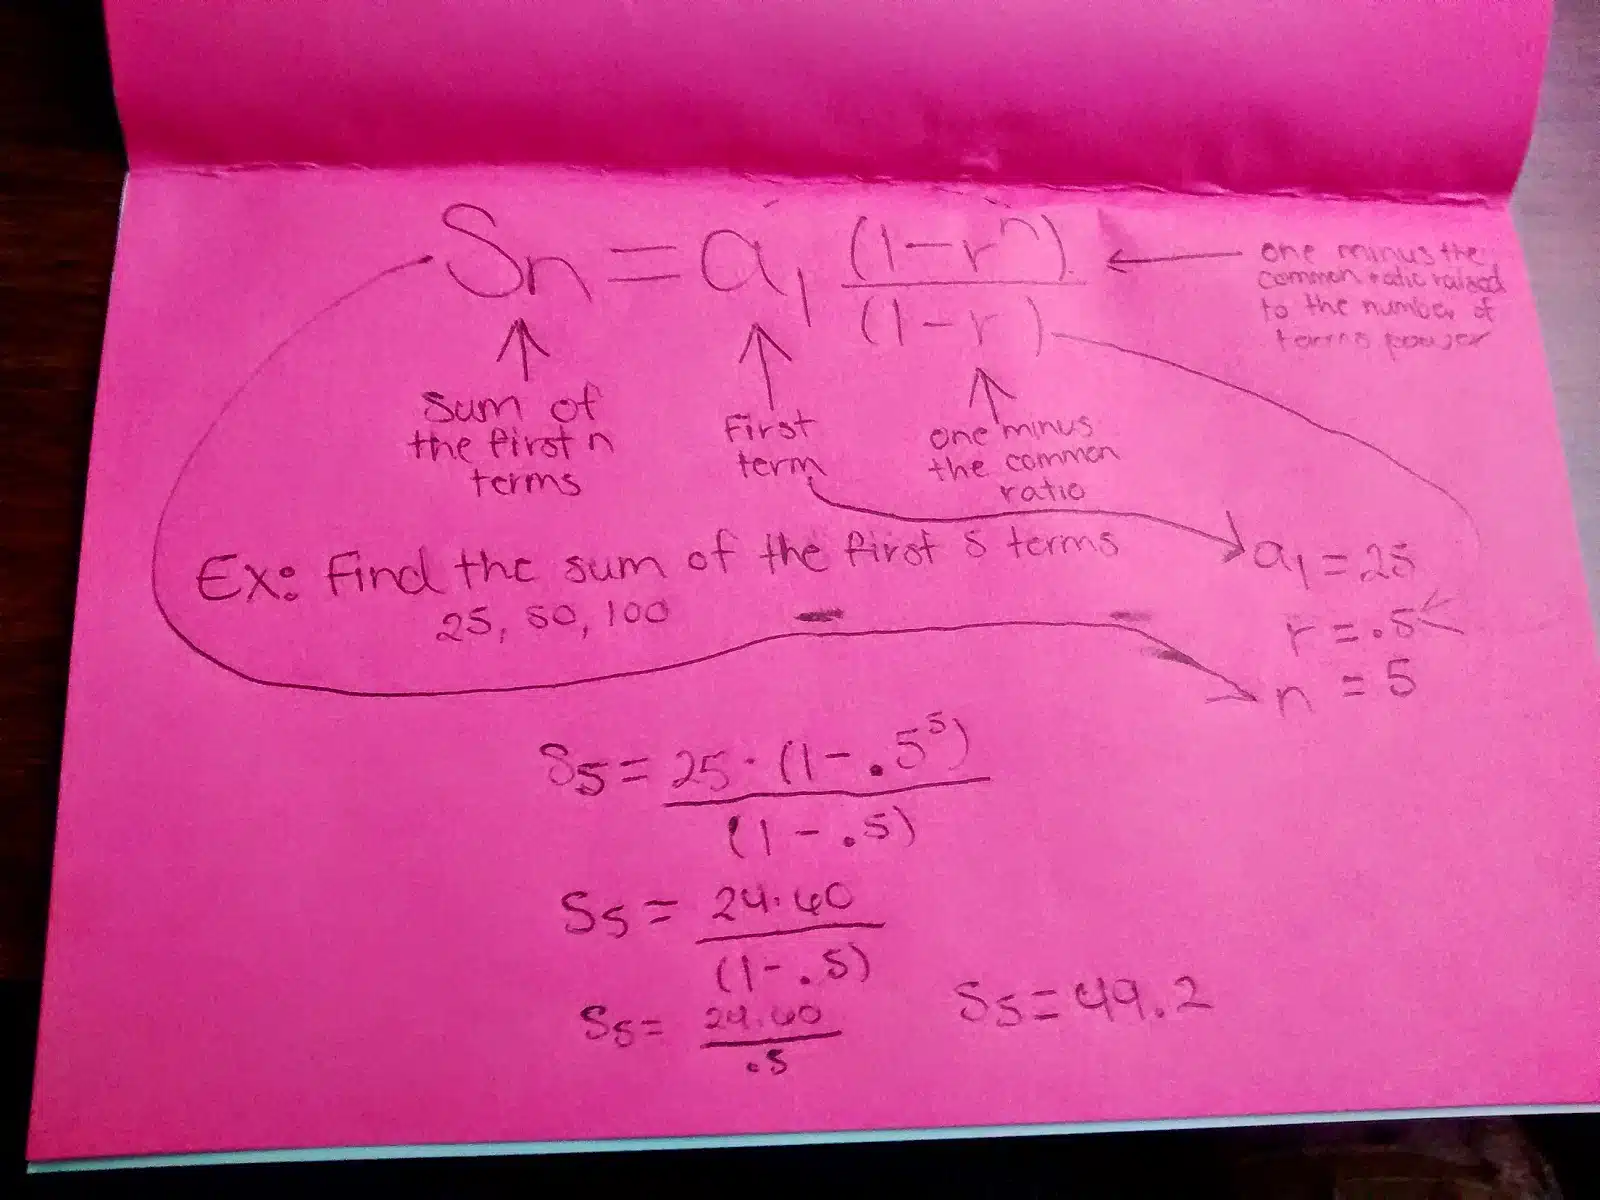 Sn = a₁ (1-rⁿ)
(1-r)
one minus the
common ratio raised
to the number of
terms power
sum of
the first n
terms
First
term
one minus
the common
ratio
Ex: Find the sum of the first 5 terms
25, 50, 100
a₁ = 25
r = .5
n = 5
S₅ = 25 · (1 - .5⁵)
(1 - .5)
S₅ = 24.60
(1 - .5)
S₅ = 24.60
.5
S₅ = 49.2